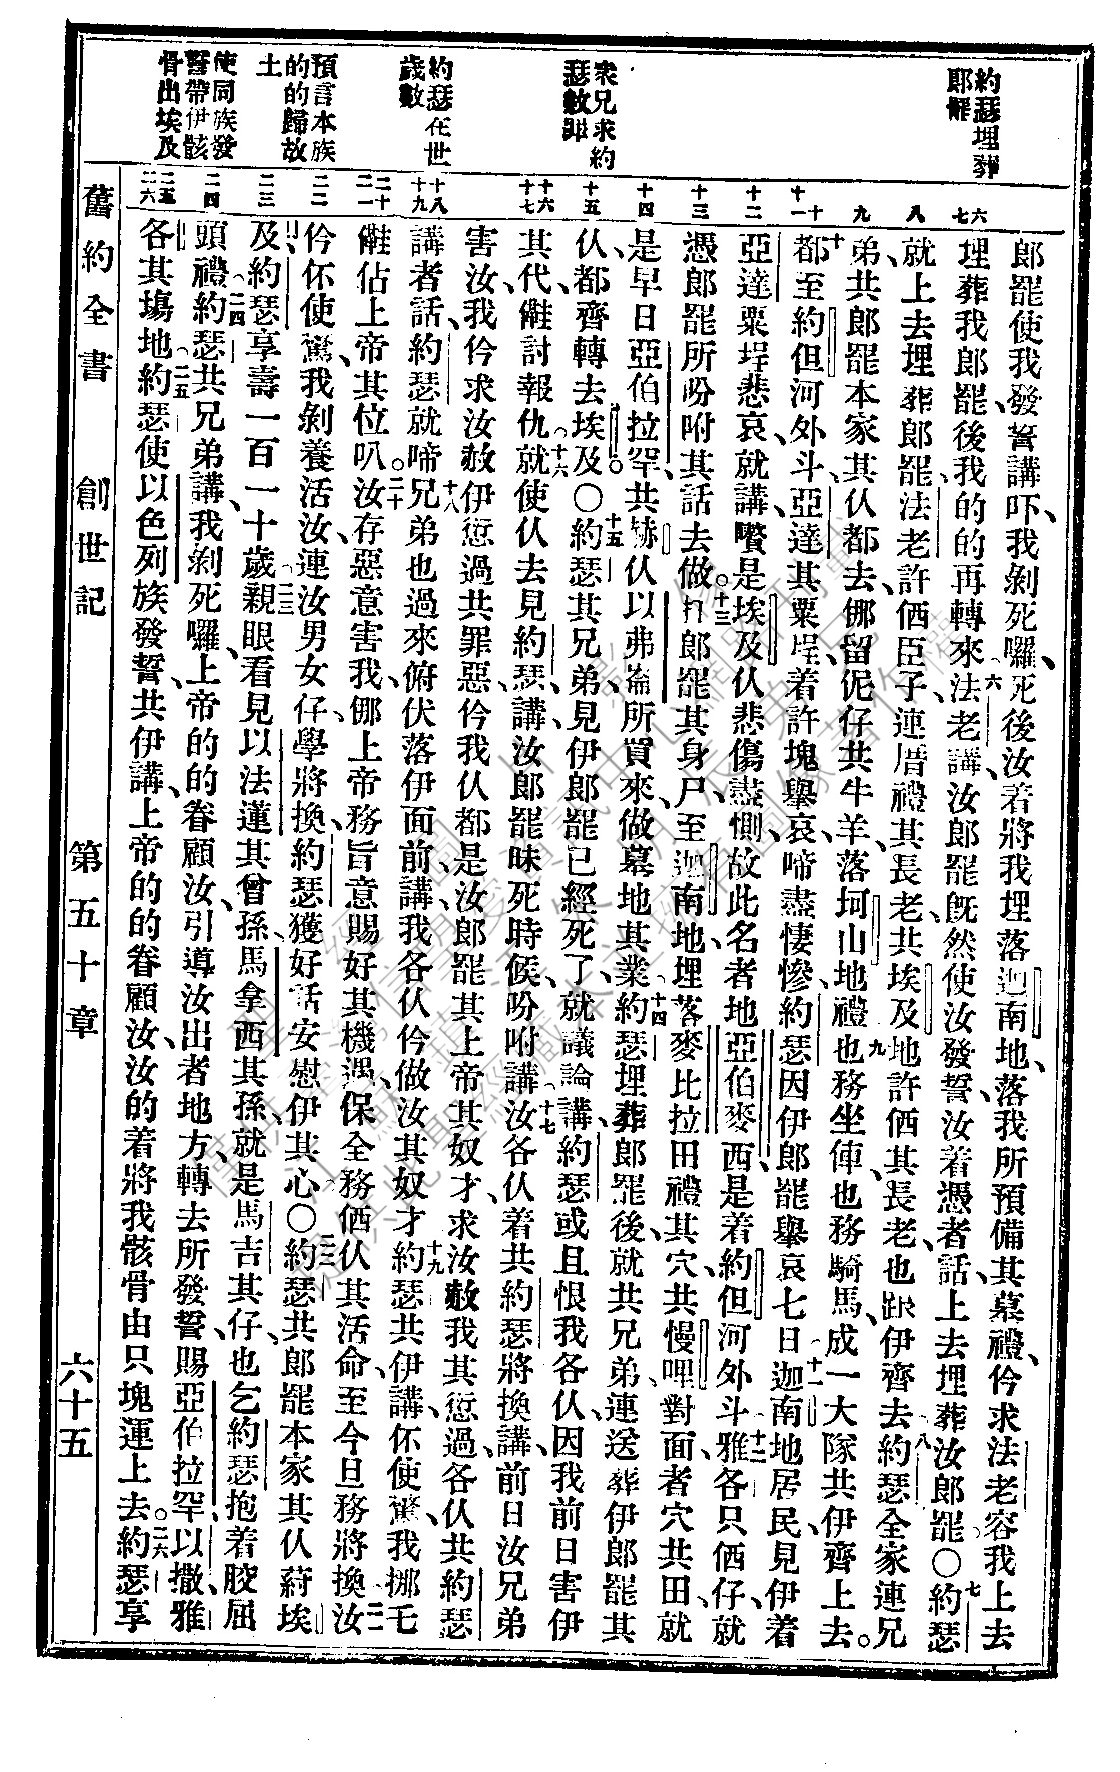 約瑟埋葬
郎罷
衆兄求約
瑟赦罪
約瑟在世
歲數
預言本族
的的歸故
土
使同族發
誓帶伊骸
骨出埃及
六
七
八
九
十
十一
十二
十三
十四
十五
十六
十七
十八
十九
二十
二一
二二
二三
二四
二五
二六
郎罷使我發誓講吓我剝死囉死後汝着將我埋落迦南地落我所預備其墓禮仱求法老容我上去
埋葬我郎罷後我的的再轉來六法老講汝郎罷旣然使汝發誓汝着憑者話上去埋葬汝郎罷〇七約瑟
就上去埋葬郎罷法老許偭臣子連厝禮其長老共埃及地許偭其長老也跟伊齊去八約瑟全家連兄
弟共郎罷本家其仈都去㑚留伲仔共牛羊落坷山地禮九也務坐俥也務騎馬成一大隊共伊齊上去。
十都至約但河外斗亞達其粟埕着許塊舉哀啼盡悽慘約瑟因伊郎罷舉哀七日十一迦南地居民見伊着
亞達粟埕悲哀就講嚽是埃及仈悲傷盡惻故此名者地亞伯麥西是着約但河外斗十二雅各只偭仔就
憑郎罷所吩咐其話去做。十三扛郎罷其身尸至迦南地埋落麥比拉田禮其穴共慢哩對面者穴共田就
是早日亞伯拉罕共赫仈以弗崙所買來做墓地其業十四約瑟埋葬郎罷後就共兄弟連送葬伊郎罷其
仈都齊轉去埃及。〇十五約瑟其兄弟見伊郎罷已經死了就議論講約瑟或且恨我各仈因我前日害伊
其代儺討報仇十六就使仈去見約瑟講汝郎罷昧死時候吩咐講十七汝各仈着共約瑟將換講前日汝兄弟
害汝我仱求汝赦伊愆過共罪惡仱我仈都是汝郎罷其上帝其奴才求汝赦我其愆過各仈共約瑟
講者話約瑟就啼十八兄弟也過來俯伏落伊面前講我各仈仱做汝其奴才十九約瑟共伊講伓使驚我挪乇
儺佔上帝其位叭。二十汝存惡意害我㑚上帝務旨意賜好其機遇保全務偭仈其活命至今旦務將換二一汝
仱伓使驚我剝養活汝連汝男女仔學將換約瑟獲好話安慰伊其心〇二二約瑟共郎罷本家其仈蒔埃
及約瑟享壽一百一十歲二三親眼看見以法蓮其曾孫馬拿西其孫就是馬吉其仔也乞約瑟抱着骹屈
頭禮二四約瑟共兄弟講我剝死囉上帝的的眷顧汝引導汝出者地方轉去所發誓賜亞伯拉罕以撒雅
各其塲地二五約瑟使以色列族發誓共伊講上帝的的眷顧汝汝的着將我骸骨由只塊運上去。二六約瑟享
舊約全書　創世記　第五十章　六十五